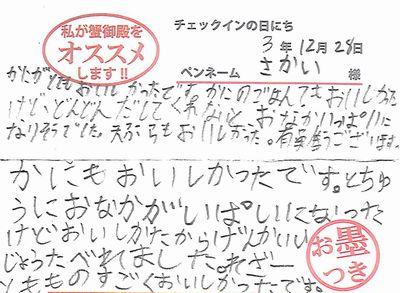 私が蟹御殿を
オススメ
します!!
チェックインの日にち
3年12月28日
ペンネーム さかい 様
かにがとてもおいしかったです。かにのごはんもおいしかった
けどどんどんだしてくれないと、おなかいっぱいに
なりそうでした。えぶらもおいしかった。有難うございます。
かにもおいしかったです。とちゅ
うにおなかがいぱしいにないった
けどおいしかたからげんかいい
じょうたべれました。れざー
ともものすごくおいしかったです。
お墨
つき